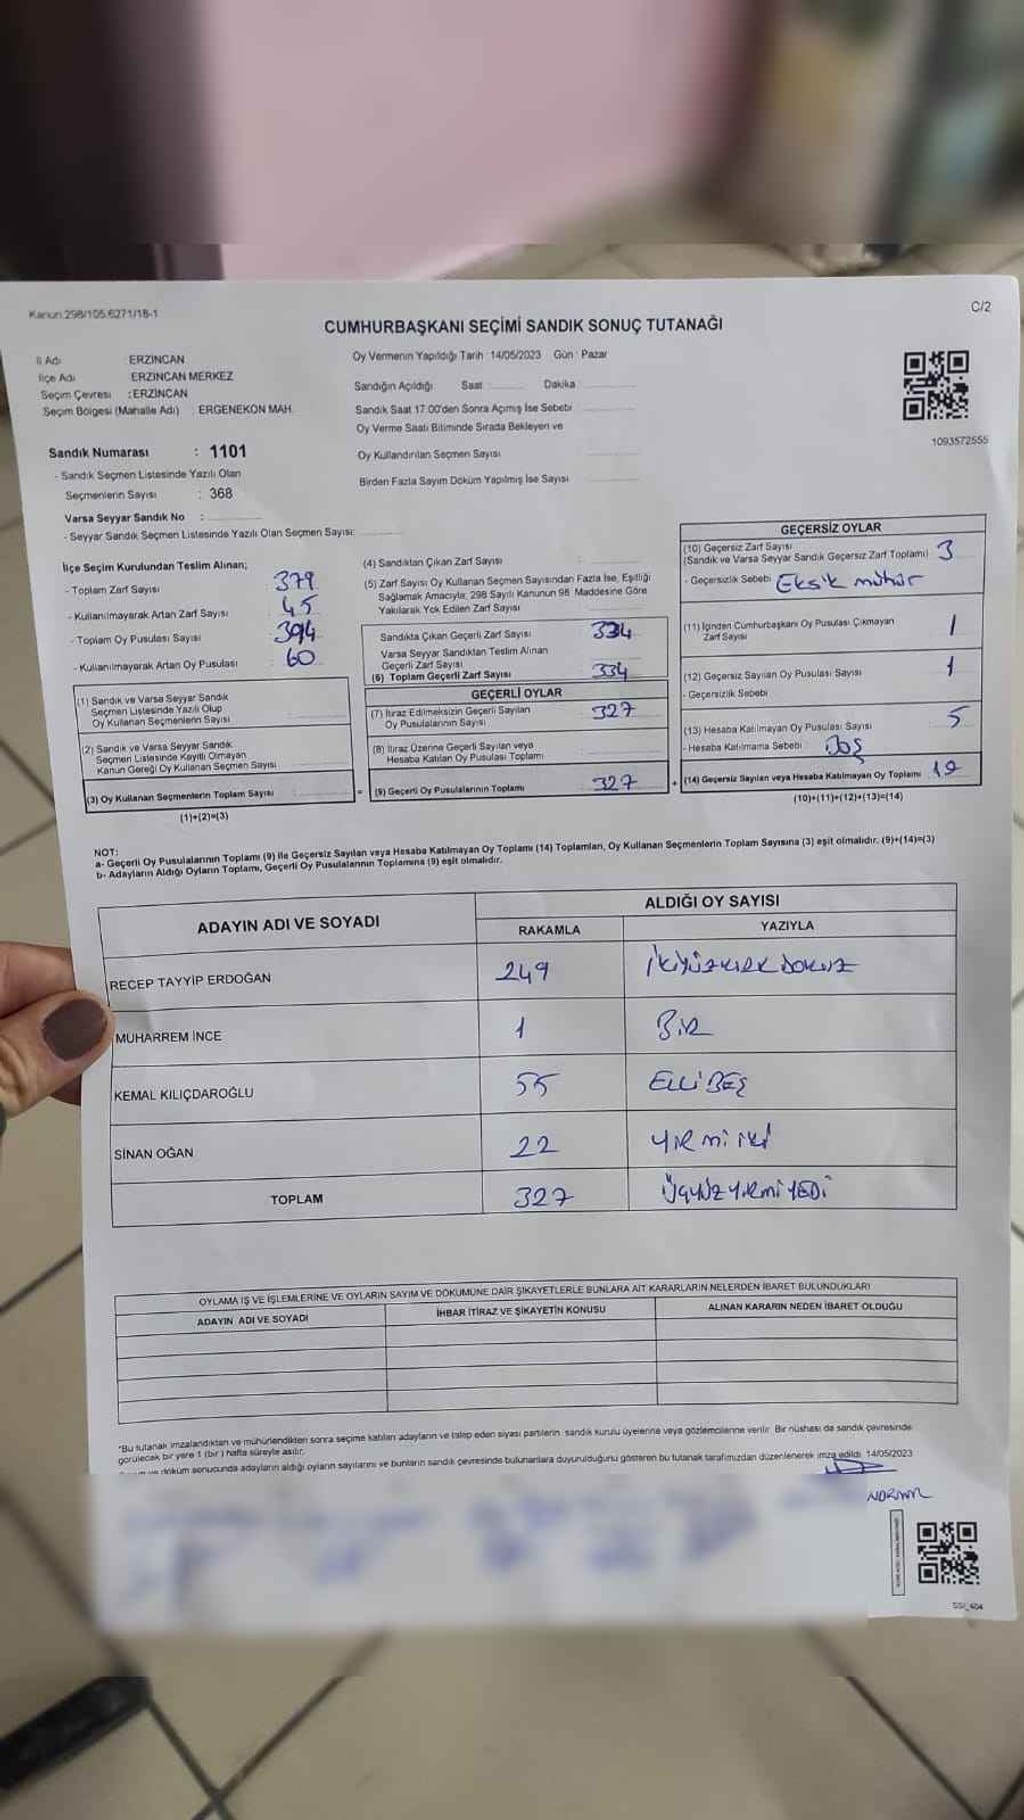 Kanun:298/105,6271/18-1
C/2
CUMHURBAŞKANI SEÇİMİ SANDIK SONUÇ TUTANAĞI
İl Adı ERZİNCAN
İlçe Adı ERZİNCAN MERKEZ
Seçim Çevresi : ERZİNCAN
Seçim Bölgesi (Mahalle Adı) : ERGENEKON MAH.
Oy Vermenin Yapıldığı Tarih : 14/05/2023 Gün : Pazar
Sandığın Açıldığı Saat Dakika
Sandık Saat 17:00'den Sonra Açımış İse Sebebi
Oy Verme Saati Bitiminde Sırada Bekleyen ve
Oy Kullandırılan Seçmen Sayısı
Birden Fazla Sayım Döküm Yapılmış İse Sayısı
1093572555
Sandık Numarası : 1101
- Sandık Seçmen Listesinde Yazılı Olan
Seçmenlerin Sayısı : 368
Varsa Seyyar Sandık No :
- Seyyar Sandık Seçmen Listesinde Yazılı Olan Seçmen Sayısı:
İlçe Seçim Kurulundan Teslim Alınan;
- Toplam Zarf Sayısı 379
- Kullanılmayarak Artan Zarf Sayısı 45
- Toplam Oy Pusulası Sayısı 394
- Kullanılmayarak Artan Oy Pusulası 60
(1) Sandık ve Varsa Seyyar Sandık
Seçmen Listesinde Yazılı Olup
Oy Kullanan Seçmenlerin Sayısı
(2) Sandık ve Varsa Seyyar Sandık
Seçmen Listesinde Kayıtlı Olmayan
Kanun Gereği Oy Kullanan Seçmen Sayısı
(3) Oy Kullanan Seçmenlerin Toplam Sayısı
(1)+(2)=(3)
(4) Sandıktan Çıkan Zarf Sayısı
(5) Zarf Sayısı Oy Kullanan Seçmen Sayısından Fazla İse, Eşitliği
Sağlamak Amacıyla; 298 Sayılı Kanunun 98. Maddesine Göre
Yakılarak Yok Edilen Zarf Sayısı
Sandıkta Çıkan Geçerli Zarf Sayısı 334
Varsa Seyyar Sandıktan Teslim Alınan
Geçerli Zarf Sayısı
(6) Toplam Geçerli Zarf Sayısı 334
GEÇERLİ OYLAR
(7) İtiraz Edilmeksizin Geçerli Sayılan
Oy Pusulalarının Sayısı 327
(8) İtiraz Üzerine Geçerli Sayılan veya
Hesaba Katılan Oy Pusulası Toplamı
= (9) Geçerli Oy Pusulalarının Toplamı 327
GEÇERSİZ OYLAR
(10) Geçersiz Zarf Sayısı
(Sandık ve Varsa Seyyar Sandık Geçersiz Zarf Toplamı) 3
- Geçersizlik Sebebi Eksik mühür
(11) İçinden Cumhurbaşkanı Oy Pusulası Çıkmayan
Zarf Sayısı 1
(12) Geçersiz Sayılan Oy Pusulası Sayısı 1
- Geçersizlik Sebebi
(13) Hesaba Katılmayan Oy Pusulası Sayısı 5
- Hesaba Katılmama Sebebi Boş
+ (14) Geçersiz Sayılan veya Hesaba Katılmayan Oy Toplamı
(10)+(11)+(12)+(13)=(14)
NOT:
a- Geçerli Oy Pusulalarının Toplamı (9) ile Geçersiz Sayılan veya Hesaba Katılmayan Oy Toplamı (14) Toplamları, Oy Kullanan Seçmenlerin Toplam Sayısına (3) eşit olmalıdır. (9)+(14)=(3)
b- Adayların Aldığı Oyların Toplamı, Geçerli Oy Pusulalarının Toplamına (9) eşit olmalıdır.
ADAYIN ADI VE SOYADI
ALDIĞI OY SAYISI
RAKAMLA YAZIYLA
RECEP TAYYİP ERDOĞAN 249 İKİYÜZKIRKDOKUZ
MUHARREM İNCE 1 BİR
KEMAL KILIÇDAROĞLU 55 ELLİBEŞ
SİNAN OĞAN 22 YİRMİİKİ
TOPLAM 327 ÜÇYÜZYİRMİYEDİ
OYLAMA İŞ VE İŞLEMLERİNE VE OYLARIN SAYIM VE DÖKÜMÜNE DAİR ŞİKAYETLERLE BUNLARA AİT KARARLARIN NELERDEN İBARET BULUNDUKLARI
ADAYIN ADI VE SOYADI İHBAR İTİRAZ VE ŞİKAYETİN KONUSU ALINAN KARARIN NEDEN İBARET OLDUĞU
*Bu tutanak imzalandıktan ve mühürlendikten sonra seçime katılan adayların ve talep eden siyasi partilerin sandık kurulu üyelerine veya gözlemcilerine verilir. Bir nüshası da sandık çevresinde
görülecek bir yere 1 (bir) hafta süreyle asılır.
ve döküm sonucunda adayların aldığı oyların sayılarını ve bunların sandık çevresinde bulunanlara duyurulduğunu gösteren bu tutanak tarafımızdan düzenlenerek imza edildi. 14/05/2023